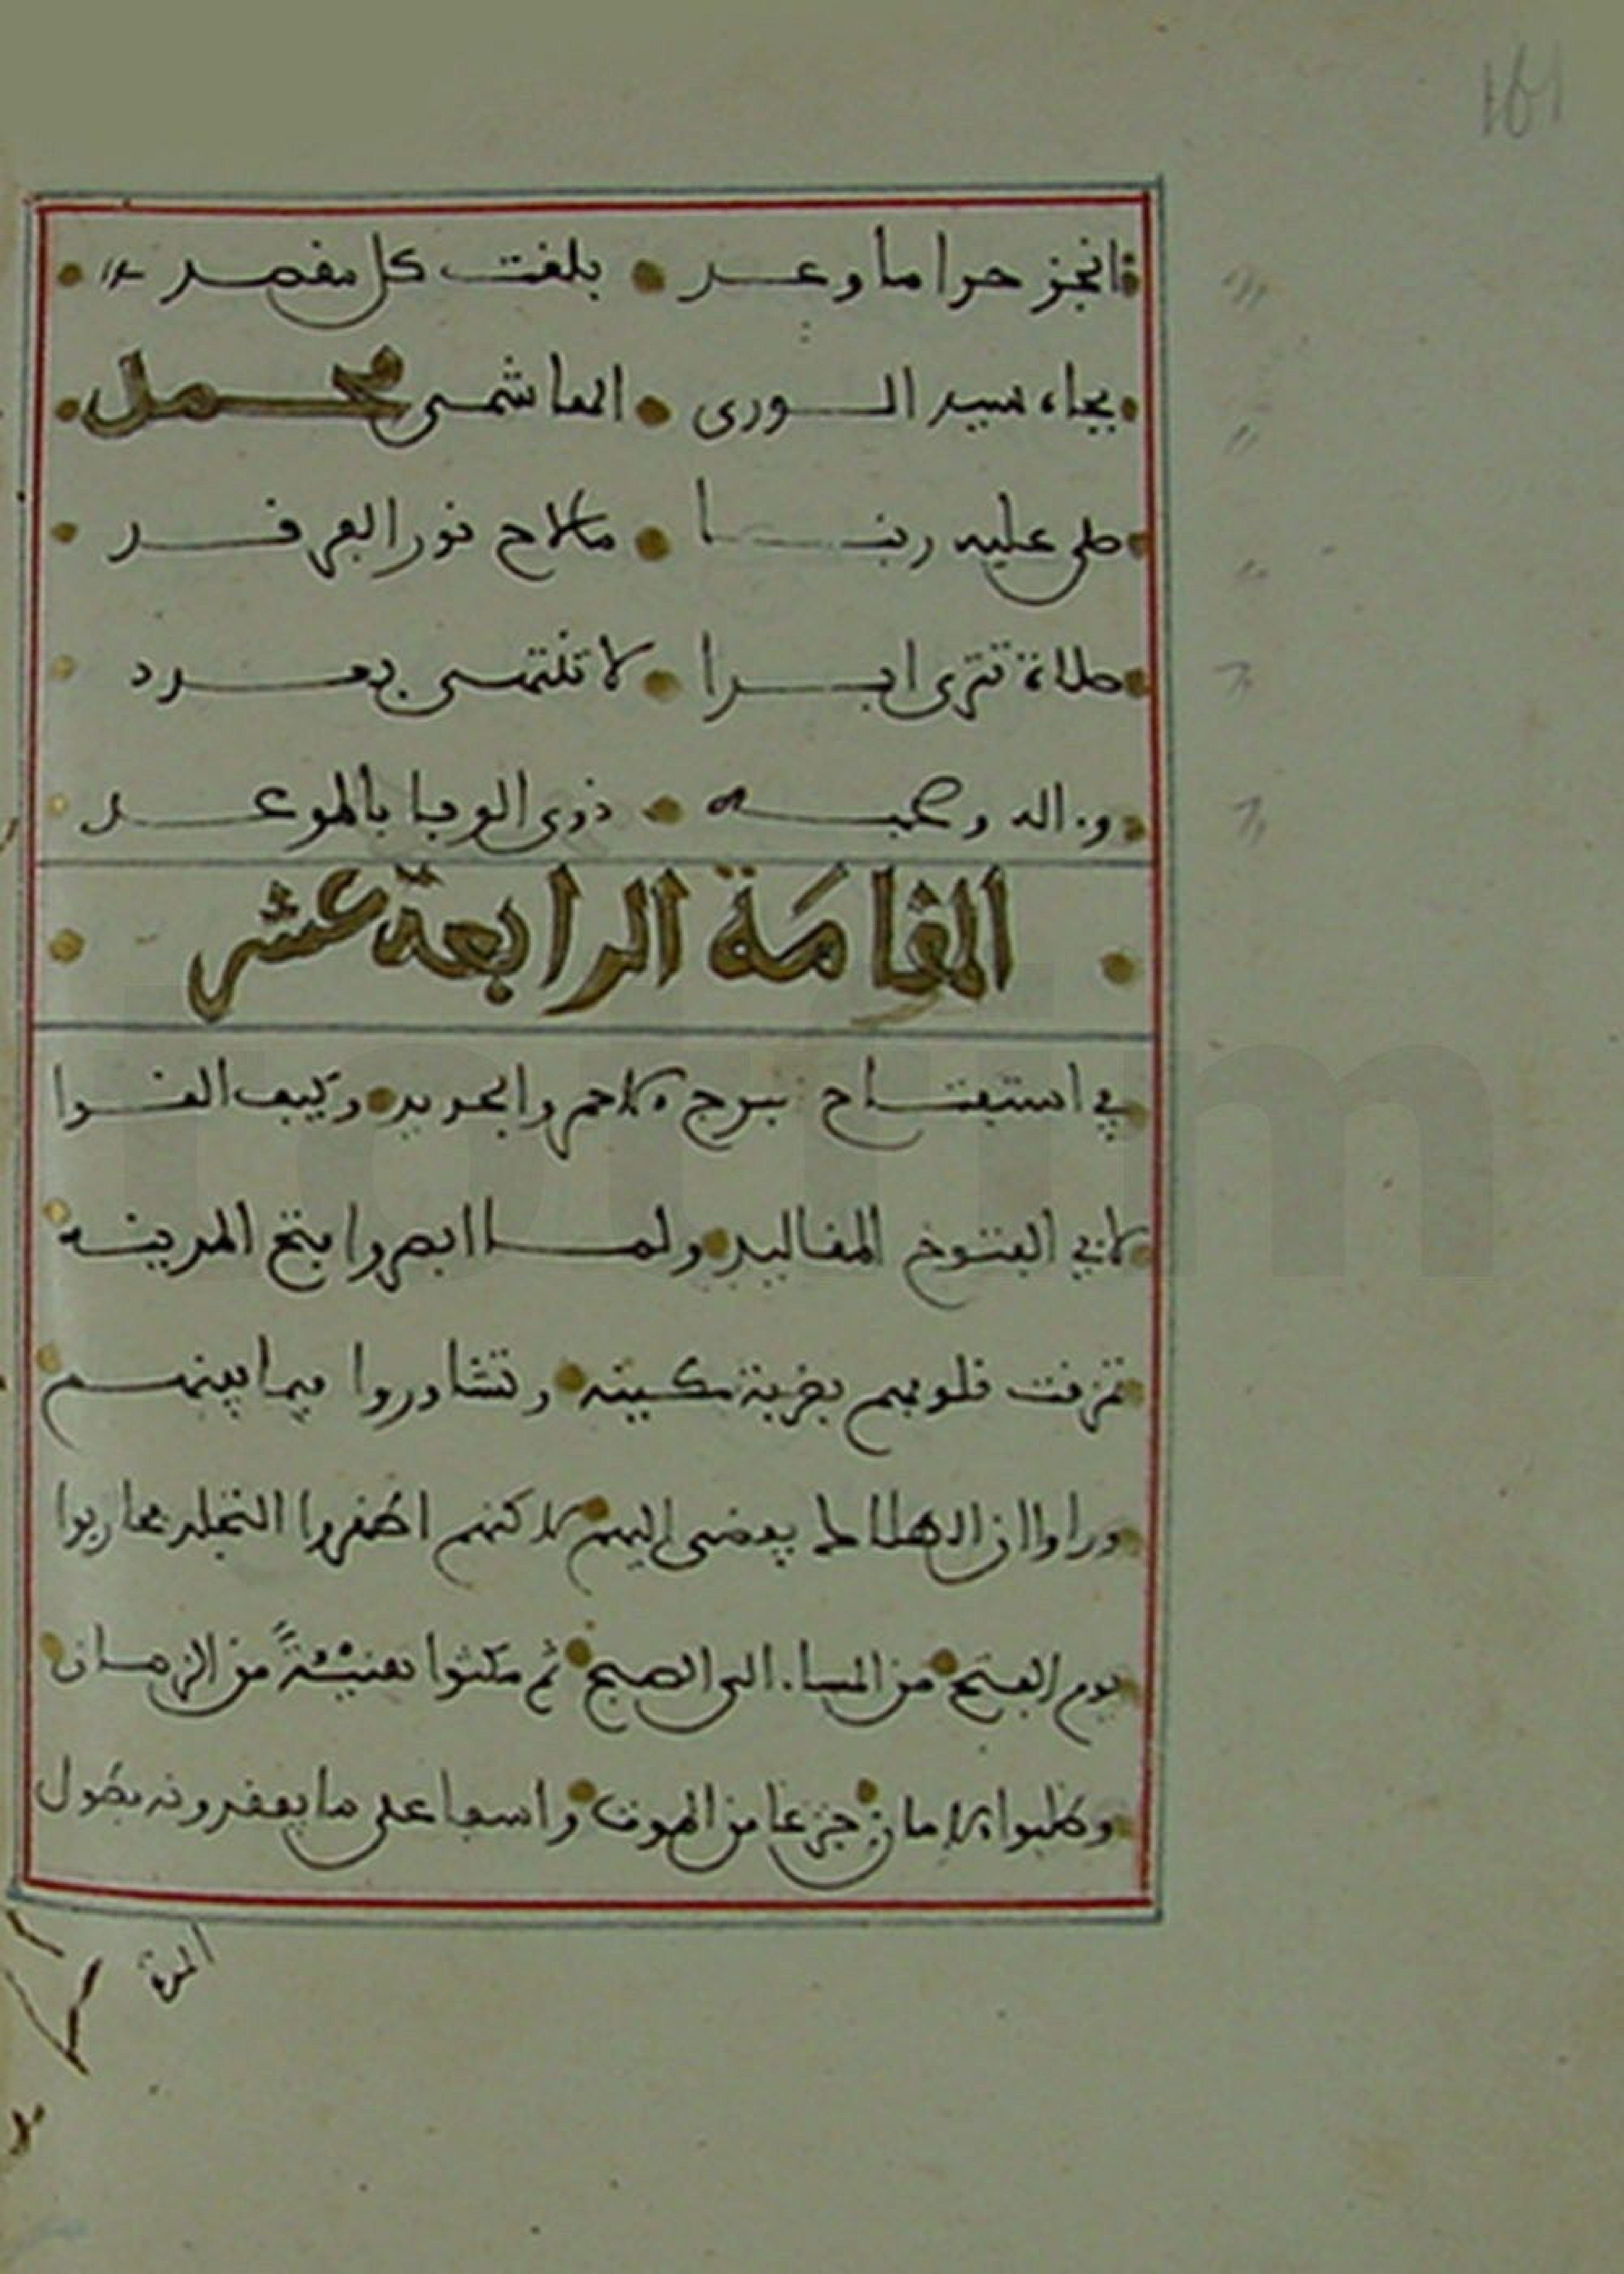 161
انجز حرا ما وعد • بلغت كل مقصد
بجاه سيد الورى • الهاشمي محمد
صلى عليه ربنا • ما لاح نور الفرقد
صلاة تترى ابدا • لا تنتهي بعدد
وءاله وصحبه • ذوي الوفا بالموعد
المقامة الرابعة عشر
في استفتاح برج الاحمر والجديد • وكيف القوا
لابي الفتوح المقاليد • ولما ابصروا فتح المدينه
تمزقت قلوبهم بغير سكينه • وتشاوروا فيما بينهم
وراوا ان الصلح يفضي اليهم • لاكنهم اظهروا التجلد فحاربوا
يوم الفتح • من المساء الى الصبح • ثم مكثوا هنيئة من الزمان
وطلبوا الامان • جزعا من الموت • واسفا على ما يفقدونه بطول
المدة